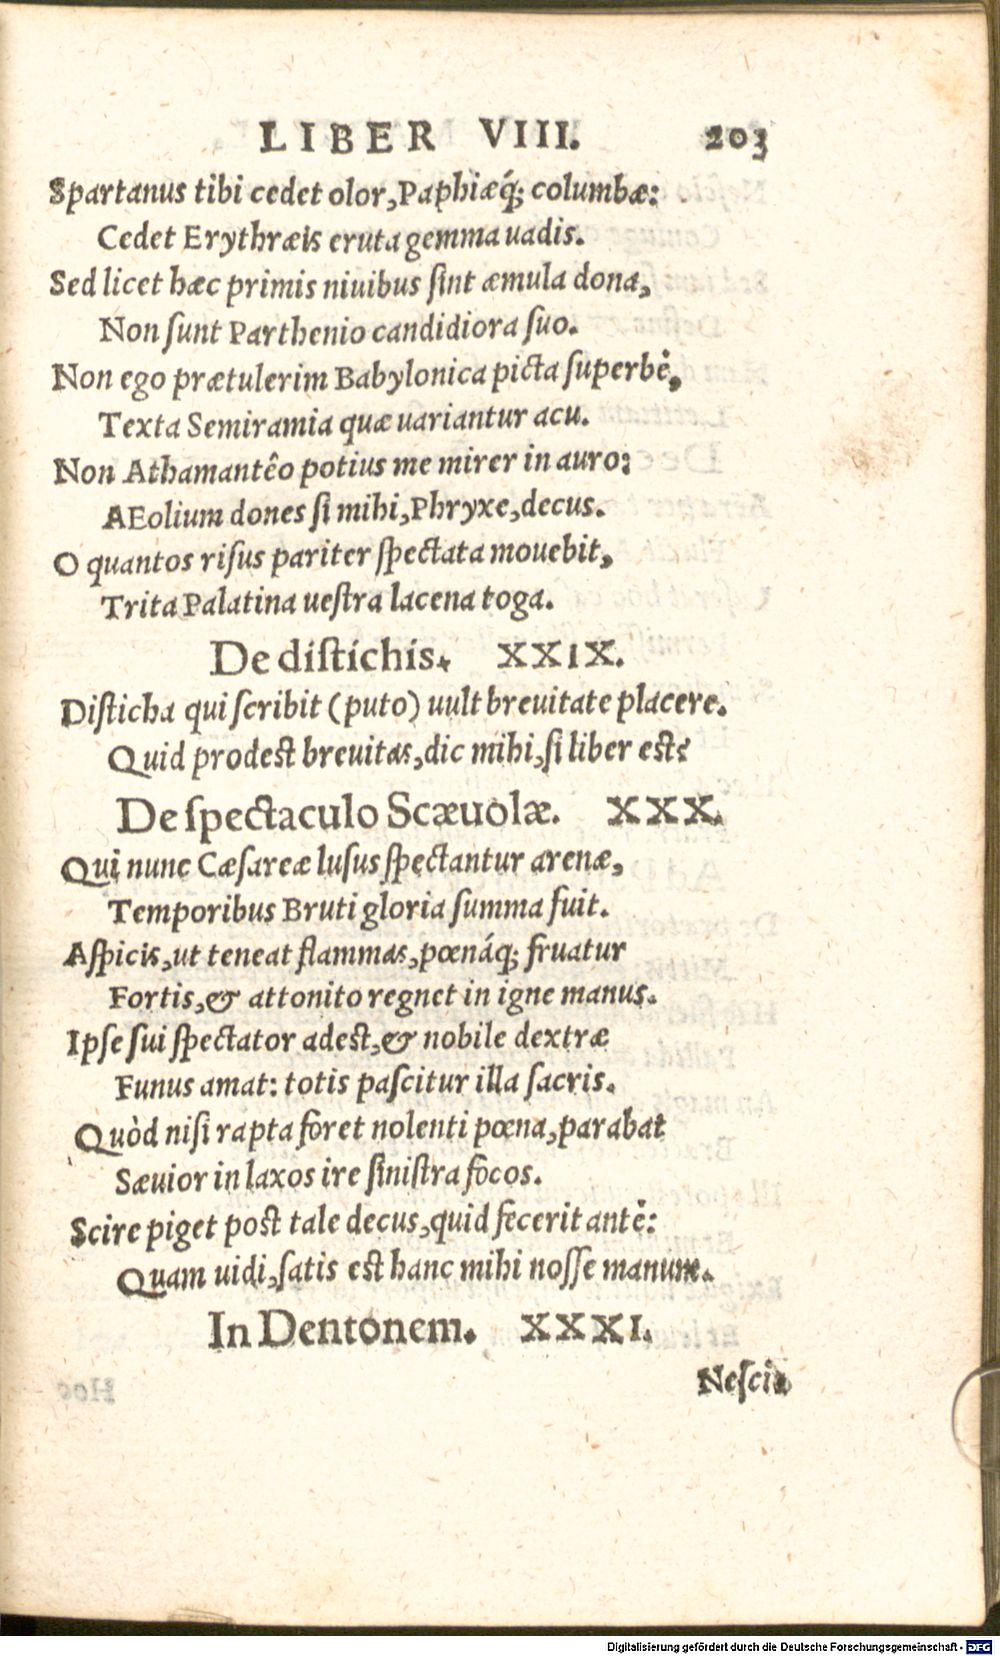 LIBER VIII. 203
Spartanus tibi cedet olor, Paphiæq́; columbæ:
Cedet Erythræis eruta gemma uadis.
Sed licet hæc primis niuibus ſint æmula dona,
Non ſunt Parthenio candidiora ſuo.
Non ego prætulerim Babylonica picta ſuperbè,
Texta Semiramia quæ uariantur acu.
Non Athamantêo potius me mirer in auro:
AEolium dones ſi mihi, Phryxe, decus.
O quantos riſus pariter ſpectata mouebit,
Trita Palatina ueſtra lacena toga.
De diſtichis. XXIX.
Diſticha qui ſcribit (puto) uult breuitate placere.
Quid prodeſt breuitas, dic mihi, ſi liber eſt?
De ſpectaculo Scæuolæ. XXX.
Qui nunc Cæſareæ luſus ſpectantur arenæ,
Temporibus Bruti gloria ſumma fuit.
Aſpicis, ut teneat flammas, pœnáq; fruatur
Fortis, & attonito regnet in igne manus.
Ipſe ſui ſpectator adeſt, & nobile dextræ
Funus amat: totis paſcitur illa ſacris.
Quòd niſi rapta foret nolenti pœna, parabat
Sæuior in laxos ire ſiniſtra focos.
Scire piget poſt tale decus, quid fecerit antè:
Quam uidi, ſatis eſt hanc mihi noſſe manum.
In Dentonem. XXXI.
Neſcio
Digitalisierung gefördert durch die Deutsche Forschungsgemeinschaft - DFG